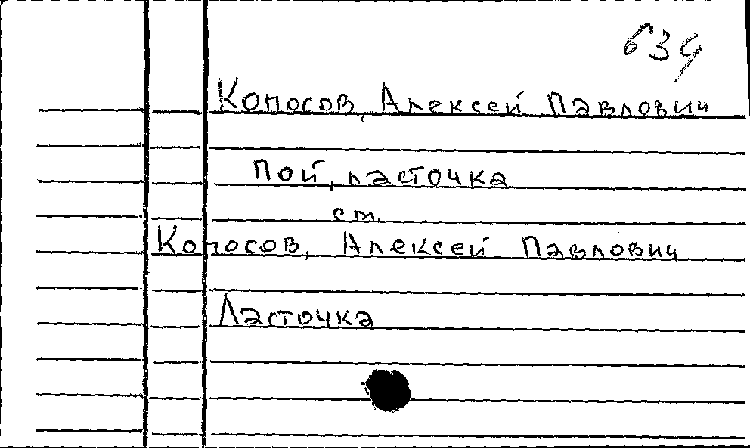 634
Колосов, Алексей Павлович
Пой, ласточка
см.
Колосов, Алексей Павлович
Ласточка